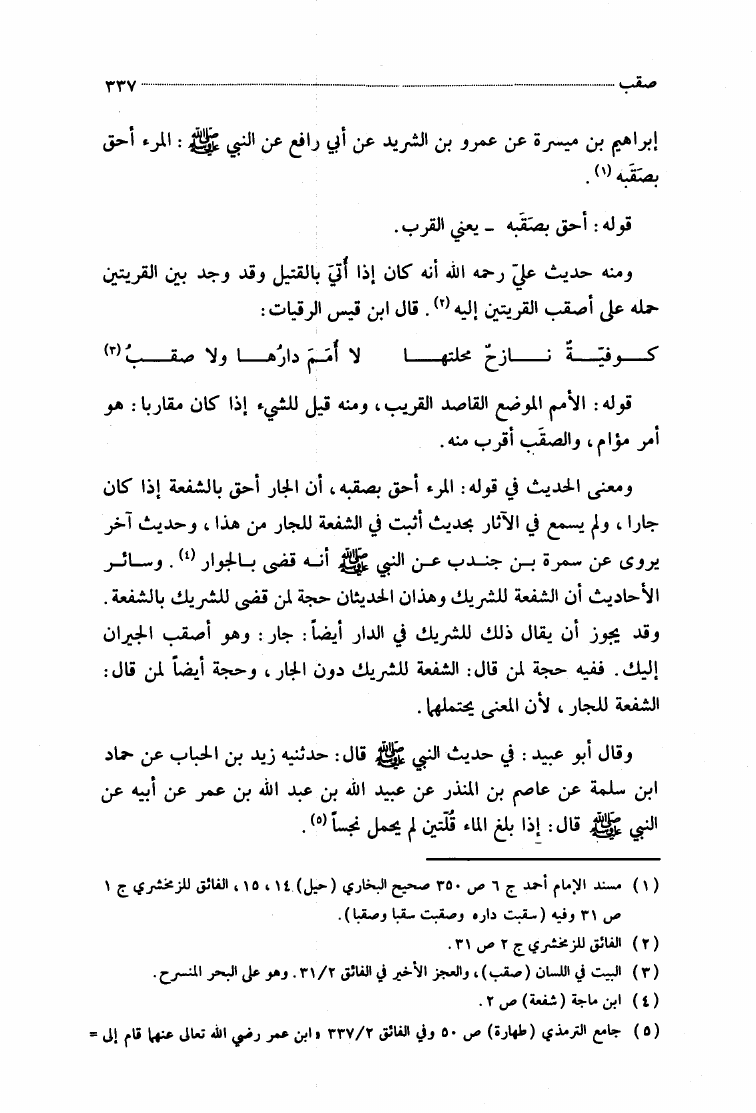 صقب ........ ٣٣٧
إبراهيم بن ميسرة عن عمرو بن الشريد عن أبي رافع عن النبي ﷺ : المرء أحق
بصَقَبه (١) .
قوله : أحق بصَقَبه – يعني القرب .
ومنه حديث عليّ رحمه الله أنه كان إذا أُتيَ بالقتيل وقد وجد بين القريتين
حمله على أصقب القريتين إليه (٢) . قال ابن قيس الرقيات :
كـوفيّـةٌ نـازحٌ محلتهـا لا أَمَمَ دارُهـا ولا صقـبُ (٣)
قوله : الأمم الموضع القاصد القريب ، ومنه قيل للشيء إذا كان مقاربا : هو
أمر مؤام ، والصقَب أقرب منه .
ومعنى الحديث في قوله : المرء أحق بصقبه ، أن الجار أحق بالشفعة إذا كان
جارا ، ولم يسمع في الآثار بحديث أثبت في الشفعة للجار من هذا ، وحديث آخر
يروى عن سمرة بـن جنـدب عـن النبي ﷺ أنـه قضى بـالجوار (٤) . وسـائـر
الأحاديث أن الشفعة للشريك وهذان الحديثان حجة لمن قضى للشريك بالشفعة .
وقد يجوز أن يقال ذلك للشريك في الدار أيضاً : جار : وهو أصقب الجيران
إليك . ففيه حجة لمن قال : الشفعة للشريك دون الجار ، وحجة أيضاً لمن قال :
الشفعة للجار ، لأن المعنى يحتملها .
وقال أبو عبيد : في حديث النبي ﷺ قال : حدثنيه زيد بن الحباب عن حماد
ابن سلمة عن عاصم بن المنذر عن عبيد الله بن عبد الله بن عمر عن أبيه عن
النبي ﷺ قال : إذا بلغ الماء قُلّتين لم يحمل نجساً (٥) .
(١) مسند الإمام أحمد ج ٦ ص ٣٥٠ صحيح البخاري (حيل) ١٤ ، ١٥ ، الفائق للزمخشري ج ١
ص ٣١ وفيه (سقبت داره وصقبت سقبا وصقبا) .
(٢) الفائق للزمخشري ج ٢ ص ٣١ .
(٣) البيت في اللسان (صقب) ، والعجز الأخير في الفائق ٣١/٢ . وهو على البحر المنسرح .
(٤) ابن ماجة (شفعة) ص ٢ .
(٥) جامع الترمذي (طهارة) ص ٥٠ وفي الفائق ٣٣٧/٢ « ابن عمر رضي الله تعالى عنهما قام إلى =